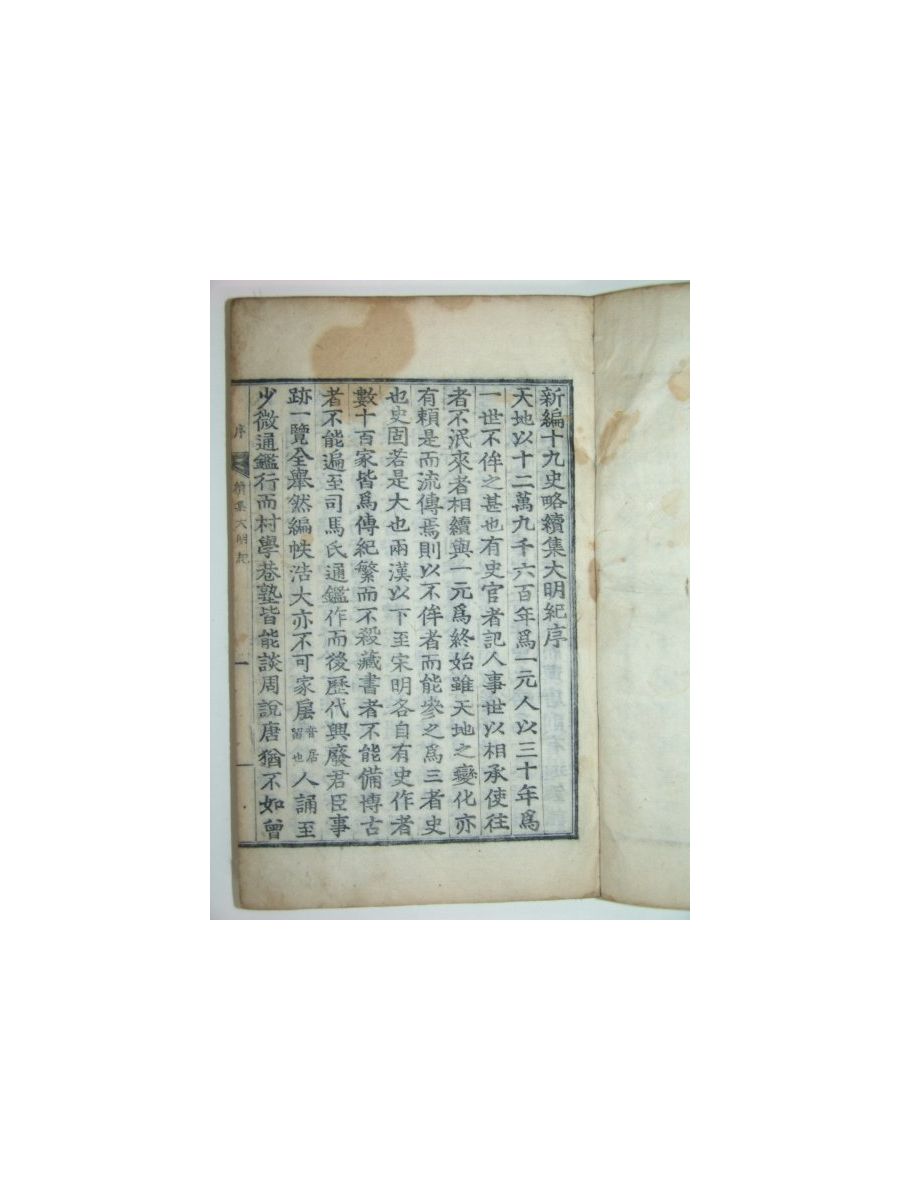 新編十九史略續集大明紀序
天地以十二萬九千六百年爲一元人以三十年爲
一世不侔之甚也有史官者記人事世以相承使往
者不泯來者相續與一元爲終始雖天地之變化亦
有賴是而流傳焉則以不侔者而能參之爲三者史
也史固若是大也兩漢以下至宋明各自有史作者
數十百家皆爲傳紀繁而不殺藏書者不能備博古
者不能遍至司馬氏通鑑作而後歷代興廢君臣事
跡一覽全舉然編帙浩大亦不可家㞐音居留也人誦至
少微通鑑行而村學巷塾皆能談周說唐猶不如曾
序
續集大明紀
一